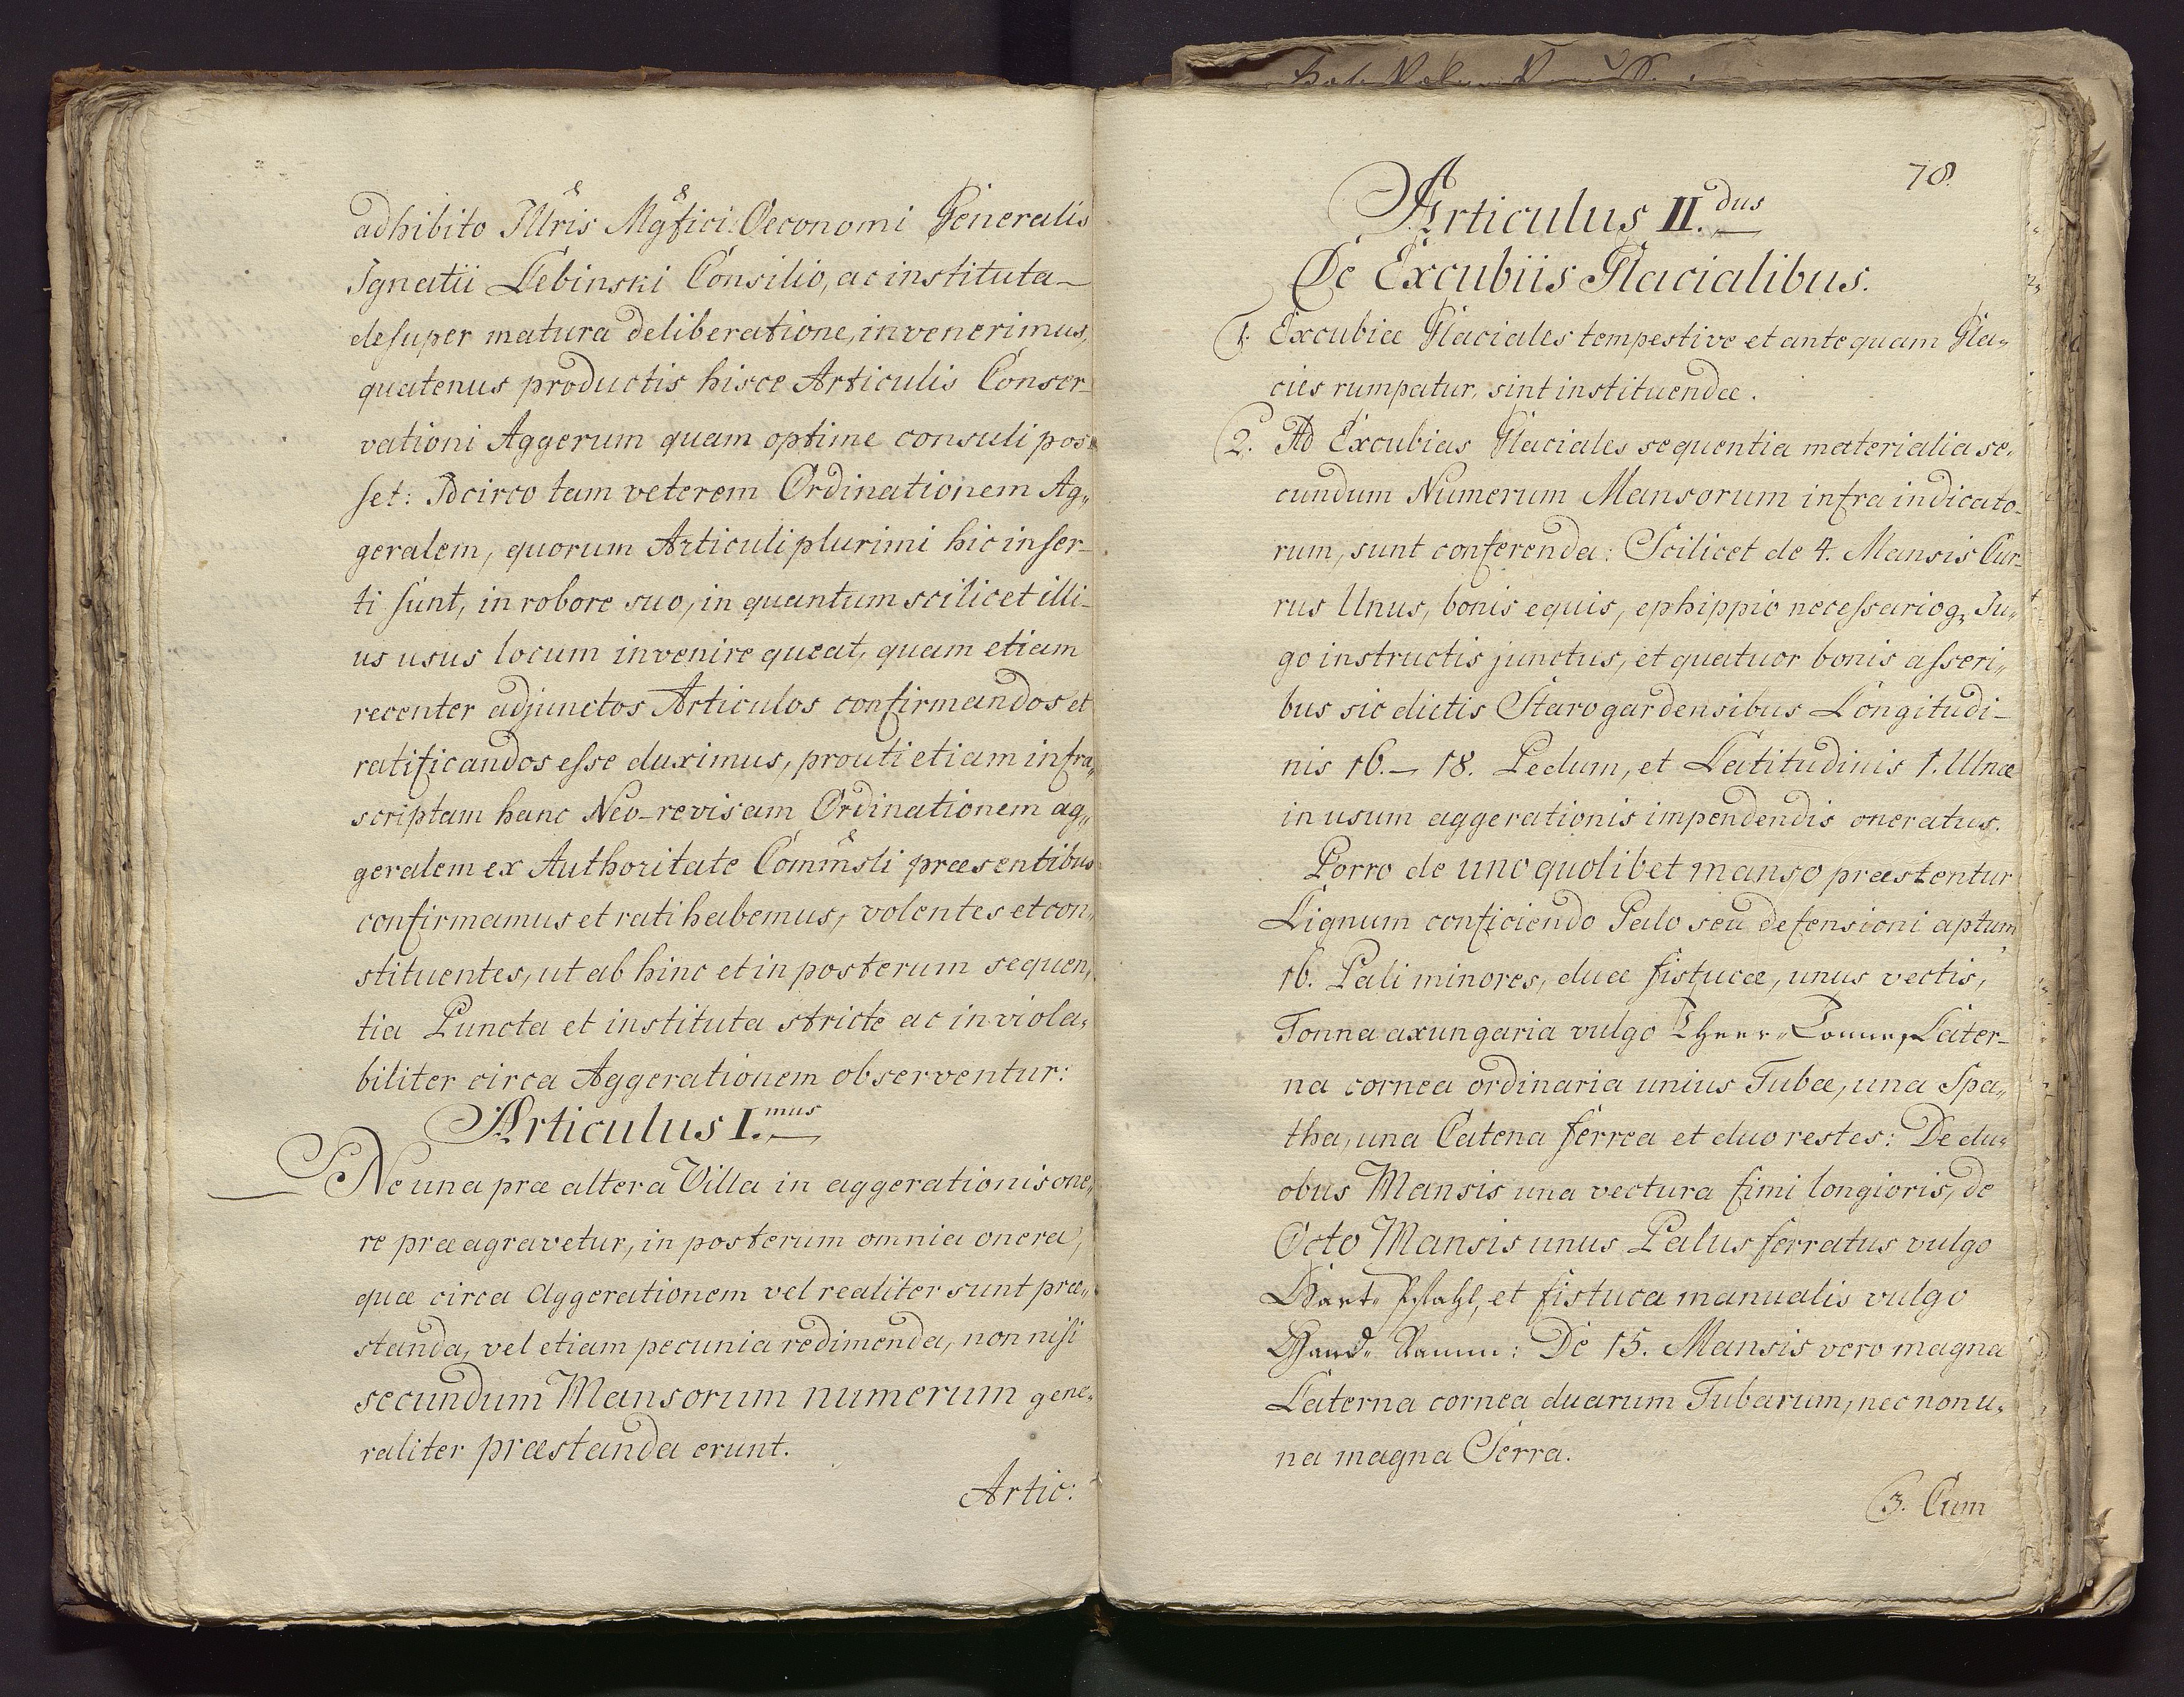 adhibito Illris Mgfici Oeconomi Generalis
Ignatii Lebinski Consilio, ac instituta
desuper matura deliberatione, invenerimus,
quatenus productis hisce Articulis Conser-
vationi Aggerum quam optime consuli pos-
set: Idcirco tam veterem Ordinationem Ag„
geralem, quorum Articuli plurimi hic inser-
ti sunt, in robore suo, in quantum scilicet illi-
us usus locum invenire queat, quam etiam
recenter adjunctos Articulos confirmandos et
ratificandos esse duximus, prouti etiam infra„
scriptam hanc Neo-revisam Ordinationem ag„
geralem ex Authoritate Commsli præsentibus
confirmamus et ratihabemus, volentes et con„
stituentes, ut ab hinc et in posterum sequen„
tia Puncta et instituta stricte ac inviola„
biliter circa Aggerationem observentur:
Articulus I.mus
Ne una præ altera Villa in aggerationis one„
re præagravetur, in posterum omnia onera,
quæ circa Aggerationem vel realiter sunt præ„
standa, vel etiam pecunia redimenda, non nisi
secundum Mansorum numerum gene„
raliter præstanda erunt.
Artic:
78.
Articulus II.dus
De Excubiis Glacialibus.
1. Excubiæ Glaciales tempestive et antequam Gla„
cies rumpatur, sint instituendæ.
2. Ad Excubias Glaciales sequentia materialia se„
cundum Numerum Mansorum infra indicato-
rum, sunt conferenda: Scilicet de 4. Mansis Cur-
rus Unus, bonis equis, ephippio necessarioq, Ju„
go instructis junctus, et quatuor bonis asseri„
bus sic dictis Starogardensibus Longitudi-
nis 16.-18. Pedum, et Latitudinis 1. Ulnæ
in usum aggerationis impendendis oneratus.
Porro de uno quolibet manso præstentur
Lignum conficiendo Palo seu defensioni aptum,
16. Pali minores, duæ fistucæ, unus vectis,
Tonna axungaria vulgo Theer„Tonne, Later-
na cornea ordinaria unius Tubæ, una Spa„
tha, una Catena ferrea et duo restes: De du„
obus Mansis una vectura fimi longioris, de
Octo Mansis unus Palus ferratus vulgo
Baart„Pfahl, et fistuca manualis vulgo
Hand„Ramm: De 15. Mansis vero magna
Laterna cornea duarum Tubarum, nec non u„
na magna Serra.
3. Cum